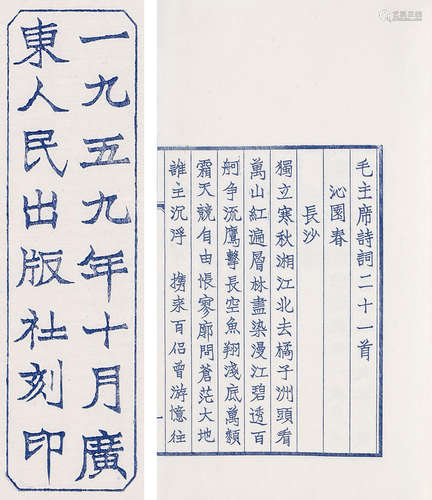 一九五九年十月廣
東人民出版社刻印
毛主席詩詞二十一首
沁園春
長沙
獨立寒秋湘江北去橘子洲頭看
萬山紅遍層林盡染漫江碧透百
舸争流鷹擊長空魚翔淺底萬類
霜天競自由悵寥廓問蒼茫大地
誰主沉浮 携來百侣曾游憶往
一